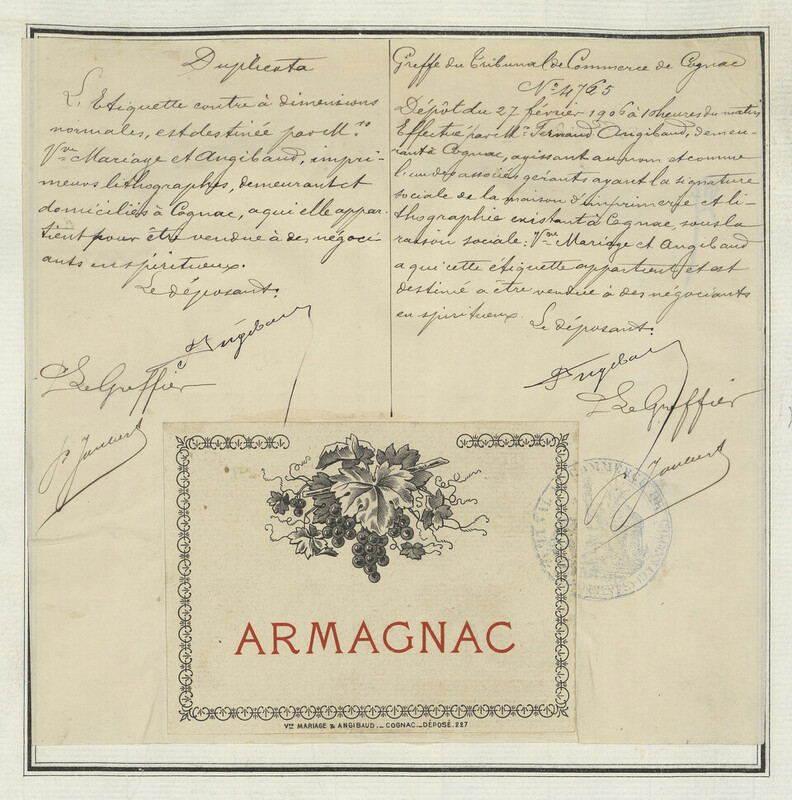 Duplicata
L'Etiquette contre à dimensions
normales, est destinée par M.rs
Vve Mariage et Angibaud, impri-
meurs lithographes, demeurant et
domiciliés à Cognac, a qui elle appar-
tient pour être vendue à des négoci-
ants en spiritueux.
Le déposant:
Angibaud
Le Greffier
Greffe du Tribunal de Commerce de Cognac
No 4765
Dépôt du 27 février 1906 à 10 heures du matin
Effectué par Mr Fernand Angibaud, demeu-
rant à Cognac, agissant au nom et comme
l'un des associés gérants ayant la signature
sociale de la maison d'imprimerie et li-
thographie existant à Cognac, sous la
raison sociale: Vve Mariage et Angibaud
a qui cette étiquette appartient et est
destiné a être vendue à des négociants
en spiritueux.
Le déposant:
Angibaud
Le Greffier
ARMAGNAC
Vve MARIAGE & ANGIBAUD _ COGNAC _ DÉPOSÉ. 227